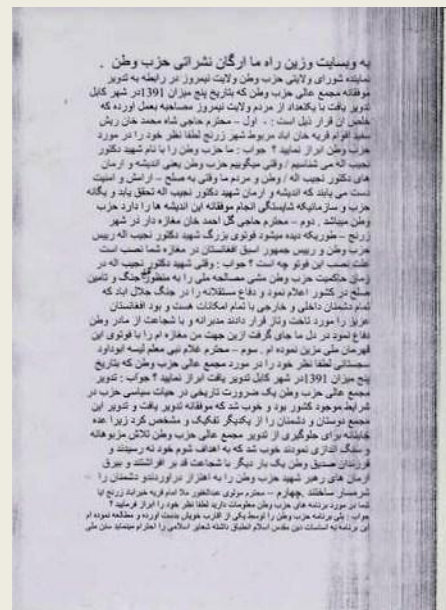 به وبسایت وزین راه ما ارگان نشراتی حزب وطن .
نماینده شورای ولایتی حزب وطن ولایت نیمروز در رابطه به تدویر
موفقانه مجمع عالی حزب وطن که بتاریخ پنج میزان 1391در شهر کابل
تدویر یافت با یکتعداد از مردم ولایت نیمروز مصاحبه بعمل اورده که
خلص ان قرار ذیل است : - اول – محترم حاجی شاه محمد خان ریش
سفید اقوام قریه خان اباد مربوط شهر زرنج لطفا نظر خود را در مورد
حزب وطن ابراز نمایید ؟ جواب : ما حزب وطن را با نام شهید دکتور
نجیب اله می شناسیم / وقتی میگوییم حزب وطن یعنی اندیشه و ارمان
های دکتور نجیب اله / وطن و مردم ما وقتی به صلح – ارامش و امنیت
دست می یابند که اندیشه و ارمان شهید دکتور نجیب اله تحقق یابد و یگانه
حزب و سازمانیکه شایستگی انجام موفقانه این اندیشه ها را دارد حزب
وطن میباشد . دوم – محترم حاجی گل احمد خان مغازه دار در شهر
زرنج – طوریکه دیده میشود فوتوی بزرگ شهید دکتور نجیب اله رییس
حزب وطن و رییس جمهور اسبق افغانستان در مغازه شما نصب است
علت نصب این فوتو چه است ؟ جواب : وقتی شهید دکتور نجیب اله در
زمان حاکمیت حزب وطن مشی مصالحه ملی را به منظور جنگ و تامین
صلح در کشور اعلام نمود و دفاع مستقلانه را در جنگ جلال اباد که
تمام دشمنان داخلی و خارجی با تمام امکانات هست و بود افغانستان
عزیز را مورد تاخت وتاز قرار دادند مدبرانه و با شجاعت از مادر وطن
دفاع نمود در دل ما جای گرفت ازین جهت من مغازه ام را با فوتوی این
قهرمان ملی مزین نموده ام . سوم – محترم غلام نبی معلم لیسه ابوداود
سجستانی لطفا نظر خود را در مورد مجمع عالی حزب وطن که بتاریخ
پنج میزان 1391در شهر کابل تدویر یافت ابراز نمایید ؟ جواب : تدویر
مجمع عالی حزب وطن یک ضرورت تاریخی در حیات سیاسی حزب در
شرایط موجود کشور بود و خوب شد که موفقانه تدویر یافت و تدویر این
مجمع دوستان و دشمنان را از یکدیگر تفکیک و مشخص کرد زیرا عده
خاینانه برای جلوگیری از تدویر مجمع عالی حزب وطن تلاش مزبوهانه
و سنگ اندازی نمودند خوب شد که به اهداف شوم خود نه رسیدند و
فرزندان صدیق وطن یک بار دیگر با شجاعت قد بر افراشتند و بیرق
ارمان های رهبر شهید حزب وطن را به اهتزاز دراوردندو دشمنان را
شرمسار ساختند .چهارم – محترم مولوی عبدالغفور ملا امام قریه خیراباد زرنج ایا
شما در مورد برنامه های حزب وطن معلومات دارید لطفا نظر خود را ابراز فرمایید ؟
جواب : بلی برنامه حزب وطن را توسط یکی از اقارب خویش بدست اورده و مطالعه نموده ام
این برنامه به اساسات دین مقدس اسلام انطباق داشته شعایر اسلامی را احترام مینماید سان ملی